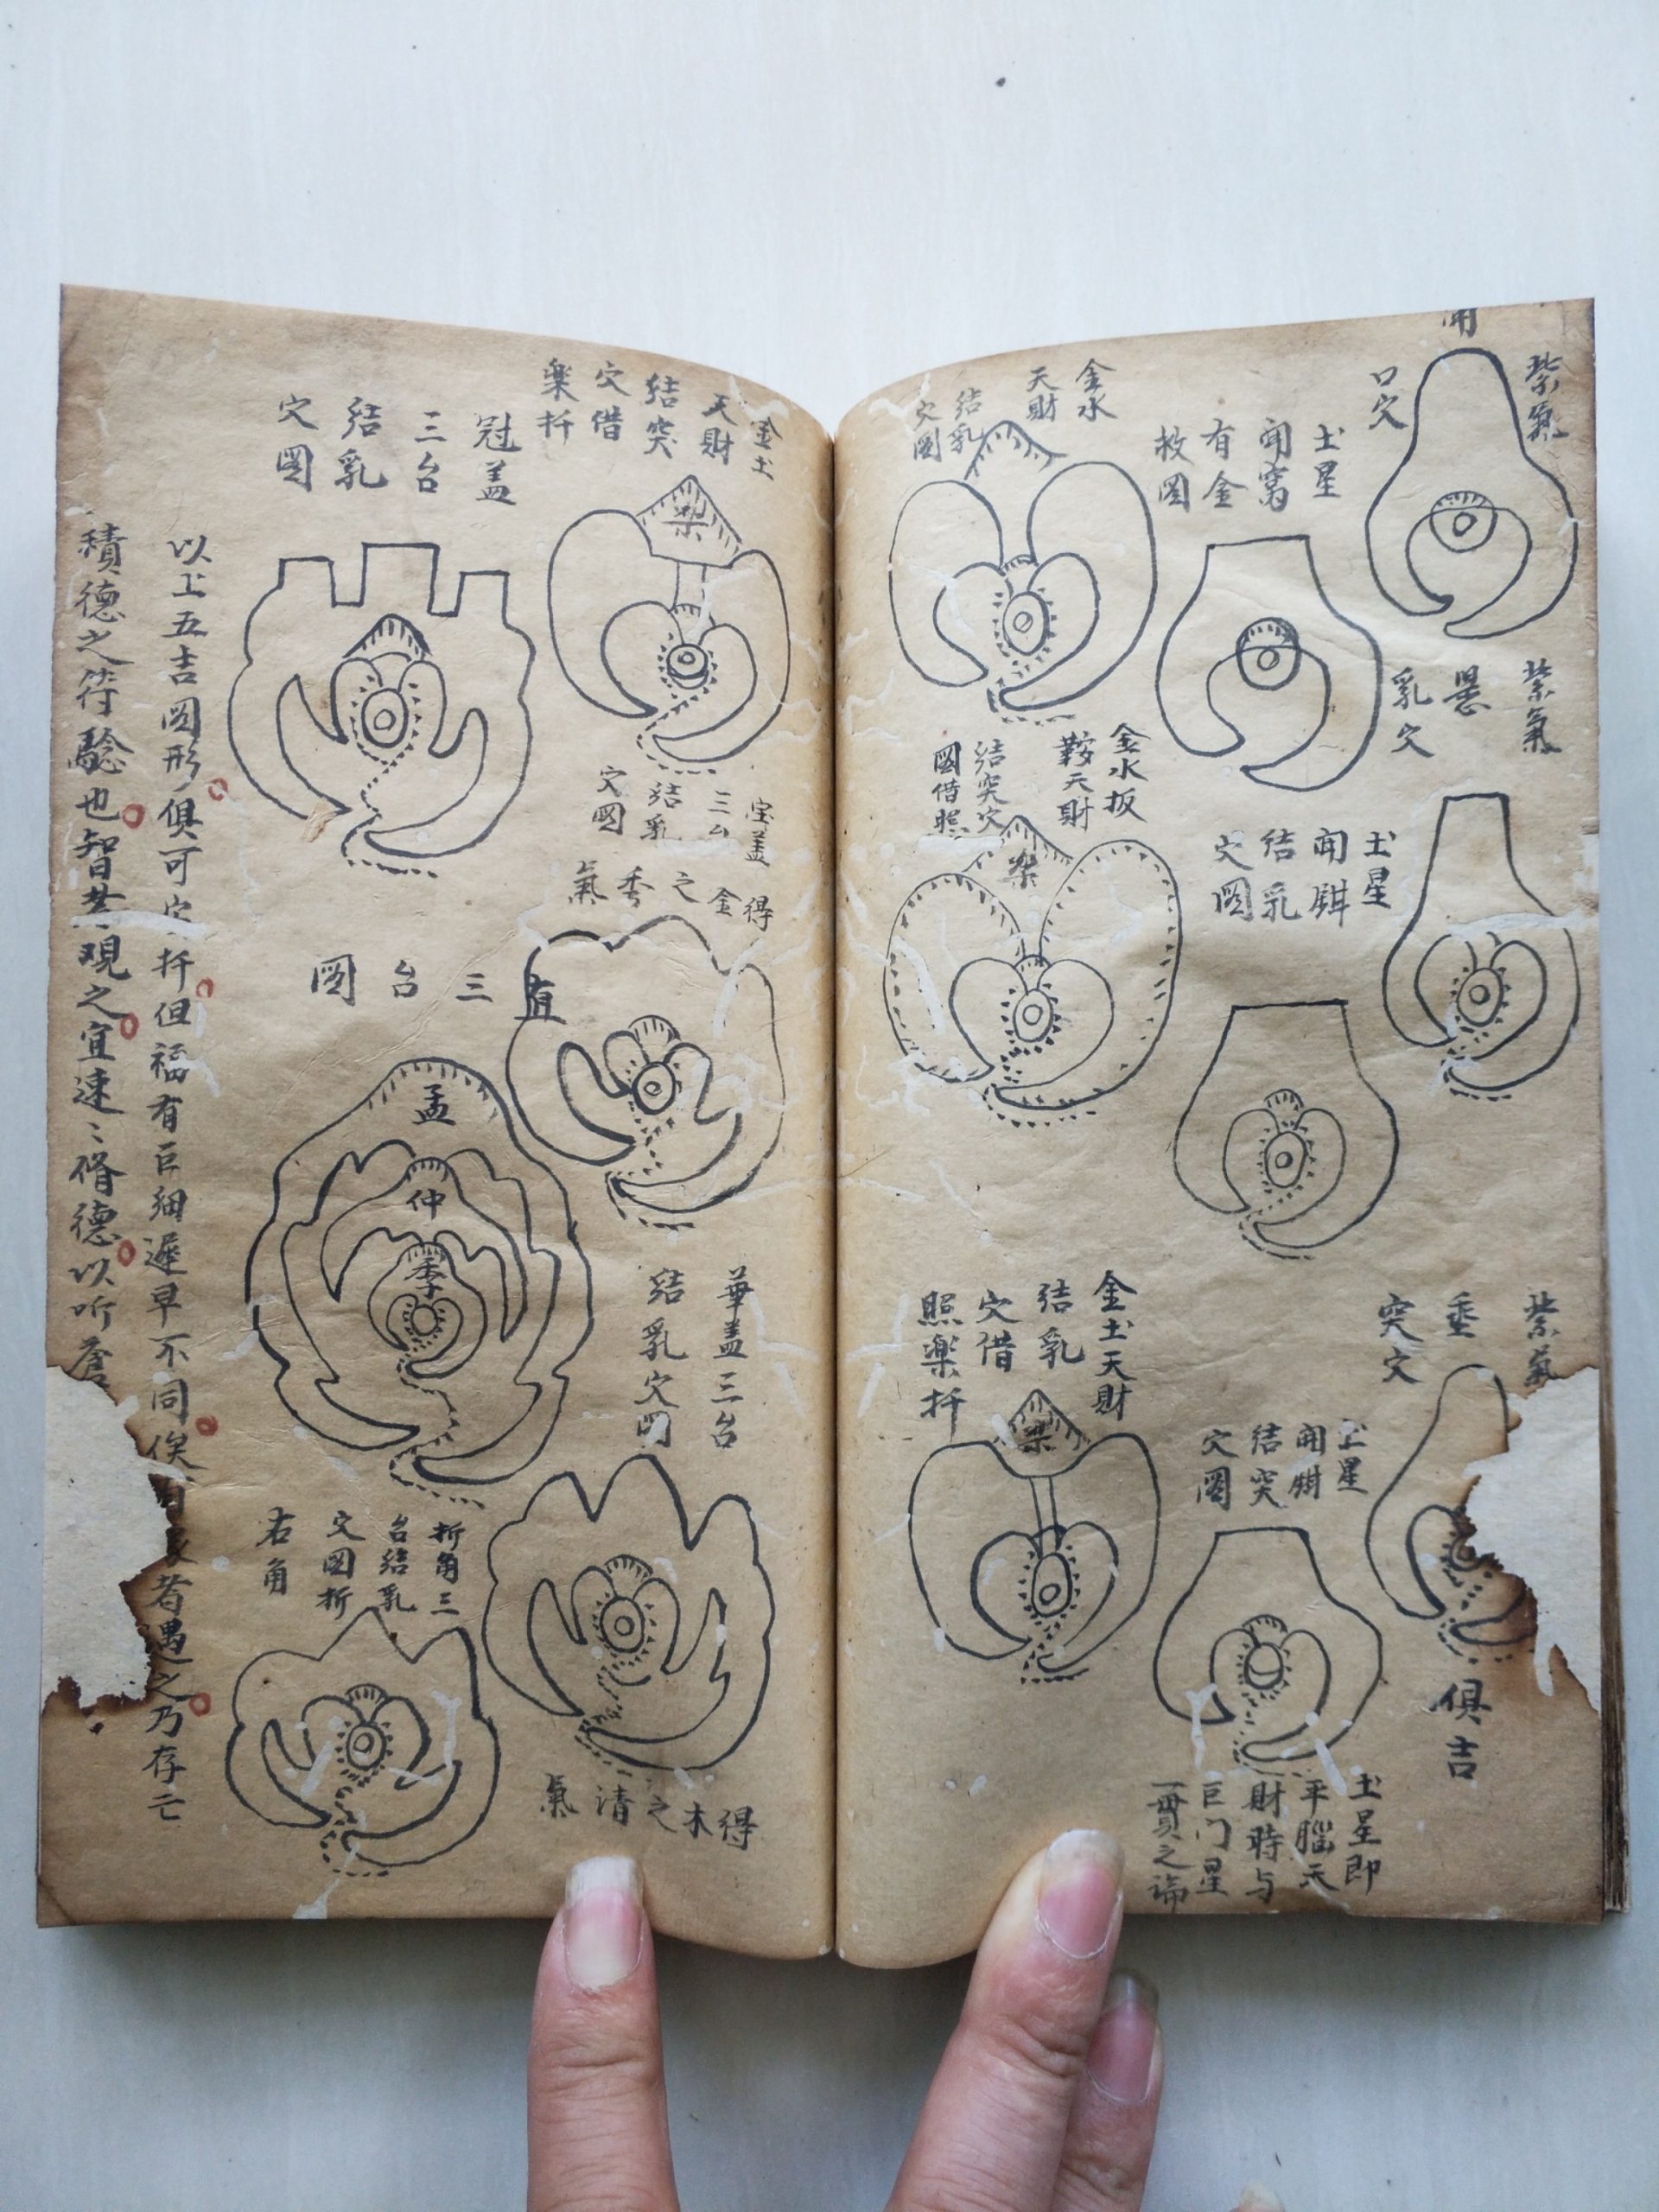 紫氣
開
口穴
土星
開窩
有金
救圖
紫氣
懸
乳穴
土星
開鉗
結乳
穴圖
紫氣
垂
突穴
俱吉
土星
開鉗
結突
穴圖
土星即
平腦天
財時与
巨门星
一貫之論
金水
天財
結乳
穴圖
金水扳
鞍天財
結突穴
圖借照
樂
金土天財
結乳
穴借
照樂扦
樂
金土
天財
結突
穴借
樂扦
樂
宝盖
三台
結乳
穴圖
得金之秀氣
華盖三台
結乳穴圖
得木之清氣
冠盖
三台
結乳
穴圖
有三台圖
孟
仲
季
折角三
台結乳
穴圖折
右角
以上五吉圖形俱可定扦但福有巨細遲早不同俟
者遇之乃存亡
積德之符驗也智者观之宜速〻脩德以听